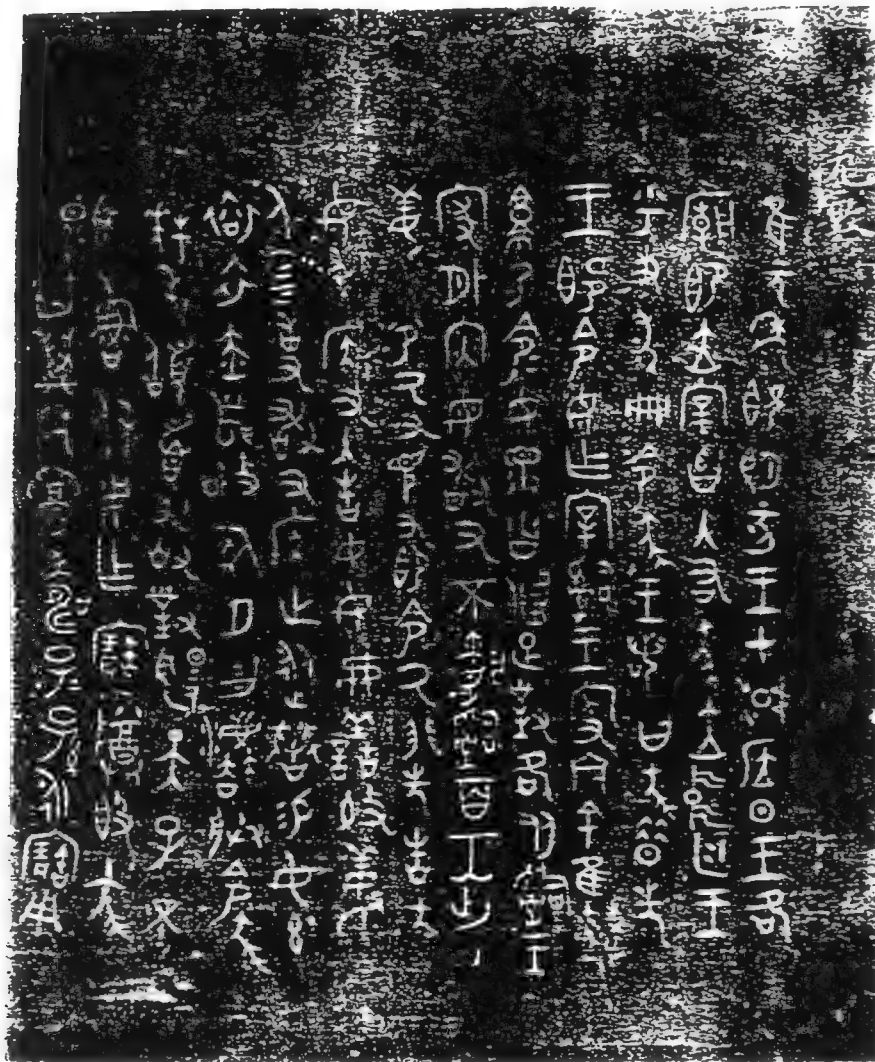 隹元年既望丁亥王才雍应旦王各
廟即立宰曶入右蔡立中廷王
乎史尤冊令蔡王若曰蔡昔先
王既令女乍宰司王家今余隹申
就乃令令女眔曶疋對各死司王
家外內毋敢又不聞司百工出入
姜氏令厥又見又即令厥非先告蔡
毋敢疾又入告女毋弗善效姜氏
人勿事敢又疾止從獄易女玄
袞衣赤舄敬夙夕勿灋朕令蔡
拜手稽首敢對揚天子不
顯魯休用乍寶尊簋蔡
其萬年眉壽子子孫孫永寶用